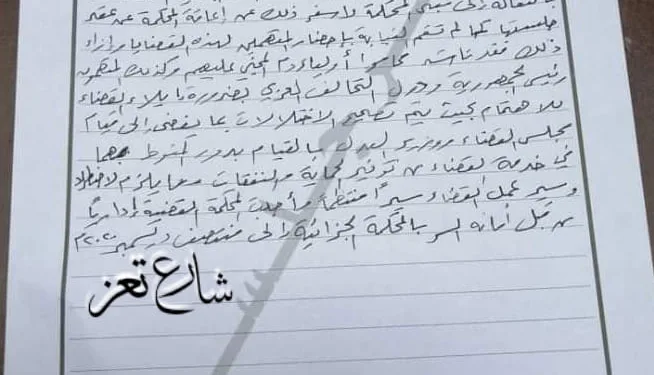 إلى مبنى المحكمة لا سفر ذلك عن إعاقة المحكمة عن عقد
جلستها كما لم تقم النيابة بإحضار المتهمين لهذه القضايا وإزاء
ذلك فقد ناشد محاموا أولياء دم المجني عليهم وكذلك المتهمون
رئيس الجمهورية ودول التحالف العربي بضرورة إيلاء القضاء
للاهتمام بحيث يتم تصحيح الاختلالات بما يفضي إلى قيام
مجلس القضاء ووزير العدل بالقيام بدور المنوط بهما
في خدمة القضاء من توفير حماية والنفقات وما يلزم لاضطلاد
وسير عمل القضاء سيراً منتظماً وأجلت المحكمة القضية إدارياً
من قبل أمانة السر بالمحكمة الجزائية إلى منتصف ديسمبر ٢٠٢٠م
شارع تعز